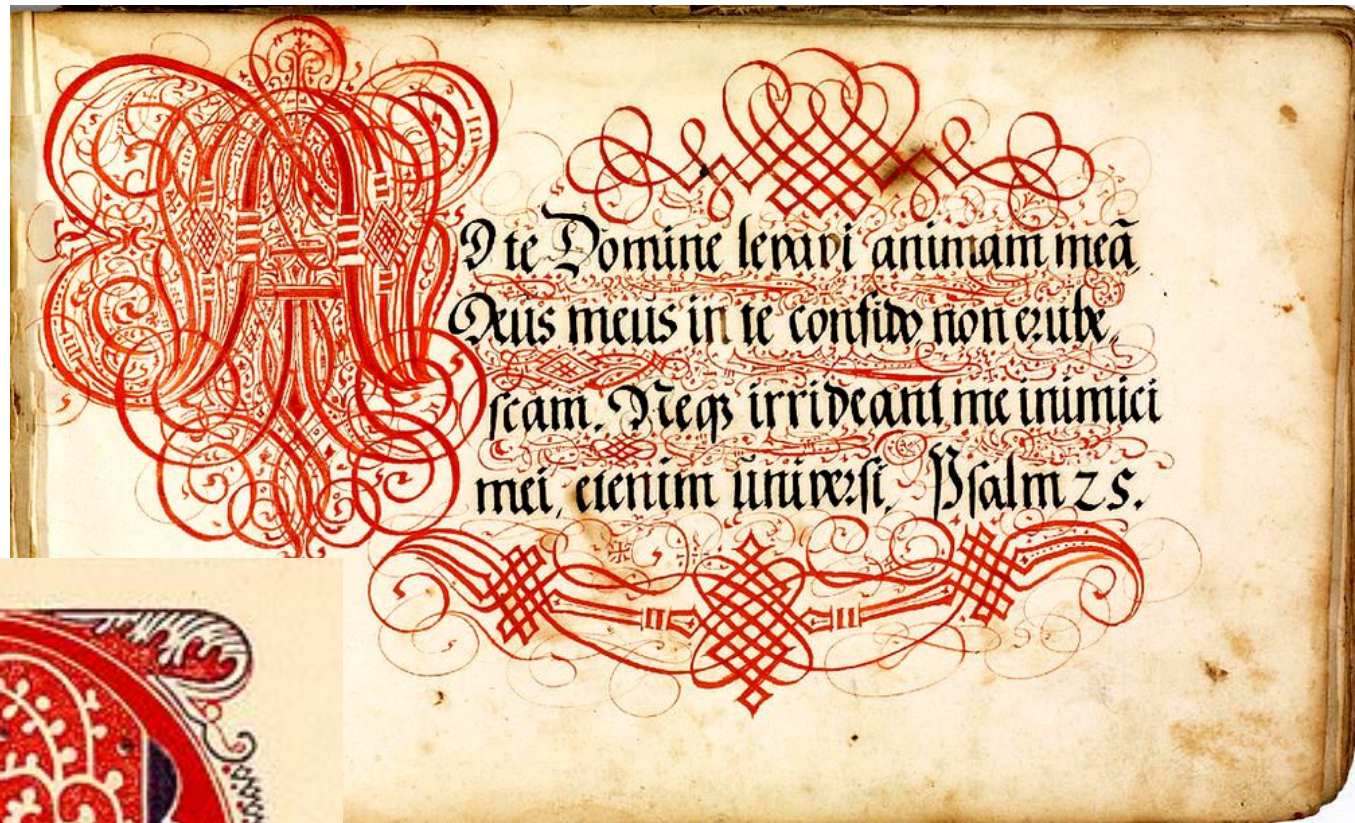 AD te Domine levavi animam meā,
Deus meus in te confido non erube,
scam. Neqꝫ irrideant me inimici
mei, etenim universi. Psalm 25.